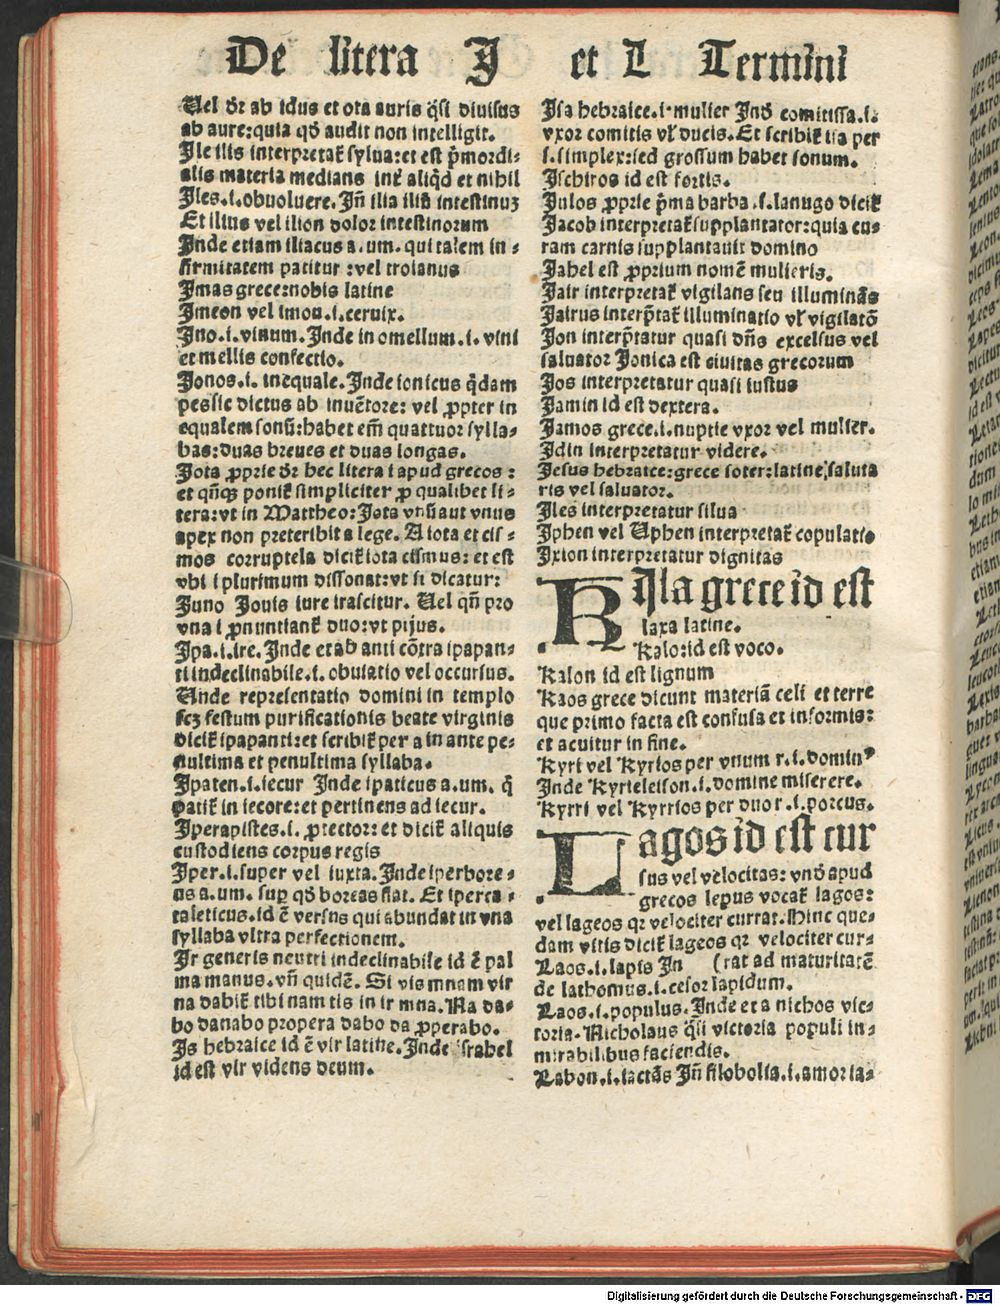 De litera J et L Termini
Uel dr̄ ab idus et ota auris q̄si diuisus
ab aure:quia qd̄ audit non intelligit.
Ile ilis interpretat᷑ sylua:et est p̄mordi⸗
alis materia medians int᷑ aliqd̄ et nihil
Iles.i.obuoluere.Jn̄ ilia iliū intestinuꝫ
Et ilius vel ilion dolor intestinorum
Jnde etiam iliacus a.um.qui talem in⸗
firmitatem patitur :vel troianus
Jmas grece:nobis latine
Jmeon vel imou.i.ceruix.
Jno.i.vinum.Jnde in omellum.i.vini
et mellis confectio.
Jonos.i.inequale.Jnde ionicus q̄dam
pes sic dictus ab inuētore: vel ꝓpter in
equalem sonū:habet em̄ quattuor sylla⸗
bas:duas breues et duas longas.
Jota ꝓprie dr̄ hec litera i apud grecos :
et qn̄qꝫ ponit᷑ simpliciter ꝓ qualibet li⸗
tera:vt in Mattheo:Jota vnū aut vnus
apex non preteribit a lege. A iota et cis⸗
mos corruptela dicit᷑ iota cismus: et est
vbi i plurimum dissonat:vt si dicatur:
Juno Jouis iure irascitur. Uel qn̄ pro
vna i ꝓnuntiant᷑ duo:vt pijus.
Jpa.i.ire. Jnde et ab anti cōtra ipapan⸗
ti indeclinabile.i.obuiatio vel occursus.
Unde representatio domini in templo
scꝫ festum purificationis beate virginis
dicit᷑ ipapanti:et scribit᷑ per a in ante pe⸗
nultima et penultima syllaba.
Jpaten.i.iecur Jnde ipaticus a.um. q̄
patit᷑ in iecore:et pertinens ad iecur.
Jperapistes.i. ꝓtector: et dicit᷑ aliquis
custodiens corpus regis
Jper.i.super vel iuxta.Jnde iperbore⸗
us a.um. sup̱ qd̄ boreas flat. Et iperca⸗
taleticus.id ē versus qui abundat in vna
syllaba vltra perfectionem.
Jr generis neutri indeclinabile id ē pal
ma manus.vn̄ quidē. Si vis mnam vir
na dabit᷑ tibi nam tis in ir mna.Na da⸗
bo danabo propera dabo da ꝓperabo.
Js hebraice id ē vir latine.Jnde israhel
id est vir videns deum.
Jsa hebraice.i.mulier Jnd̄ comitissa.i.
vxor comitis vl᷑ ducis.Et scribit᷑ ita per
s.simplex:sed grossum habet sonum.
Jschiros id est fortis.
Julos ꝓprie p̄ma barba.s.lanugo dicit᷑
Jacob interpretat᷑ supplantator:quia cu⸗
ram carnis supplantauit domino
Jahel est ꝓprium nomē mulieris.
Jair interpretat᷑ vigilans seu illuminās
Jairus interp̄tat᷑ illuminatio vl᷑ vigilatō
Jon interp̄tatur quasi dn̄s excelsus vel
saluator Jonica est ciuitas grecorum
Jos interpretatur quasi iustus
Jamin id est dextera.
Jamos grece.i.nuptie vxor vel mulier.
Jdin interpretatur videre.
Jesus hebraice:grece soter:latine:saluta
ris vel saluator.
Jles interpretatur silua
Jphen vel Uphen interpretat᷑ copulatio
Jxion interpretatur dignitas
K Jsla grece id est
laxa latine.
Kalo:id est voco.
Kalon id est lignum
Kaos grece dicunt materiā celi et terre
que primo facta est confusa et informis:
et acuitur in fine.
Kyri vel Kyrios per vnum r.i.dominꝰ
Jnde Kyrieleison.i.domine miserere.
Kyrri vel Kyrrios per duo r.i.porcus.
Lagos id est cur
sus vel velocitas: vnd̄ apud
grecos lepus vocat᷑ lagos:
vel lageos qꝛ velociter currat.Hinc que⸗
dam vitis dicit᷑ lageos qꝛ velociter cur⸗
Laos.i.lapis Jn (rat ad maturitatē
de lathomus.i.cesor lapidum.
Laos.i.populus.Jnde et a nichos vic⸗
toria.Nicholaus q̄si victoria populi in⸗
mirabilibus faciendis.
Labon.i.lactās Jn̄ filobolia.i.amor la⸗
Digitalisierung gefördert durch die Deutsche Forschungsgemeinschaft - DFG